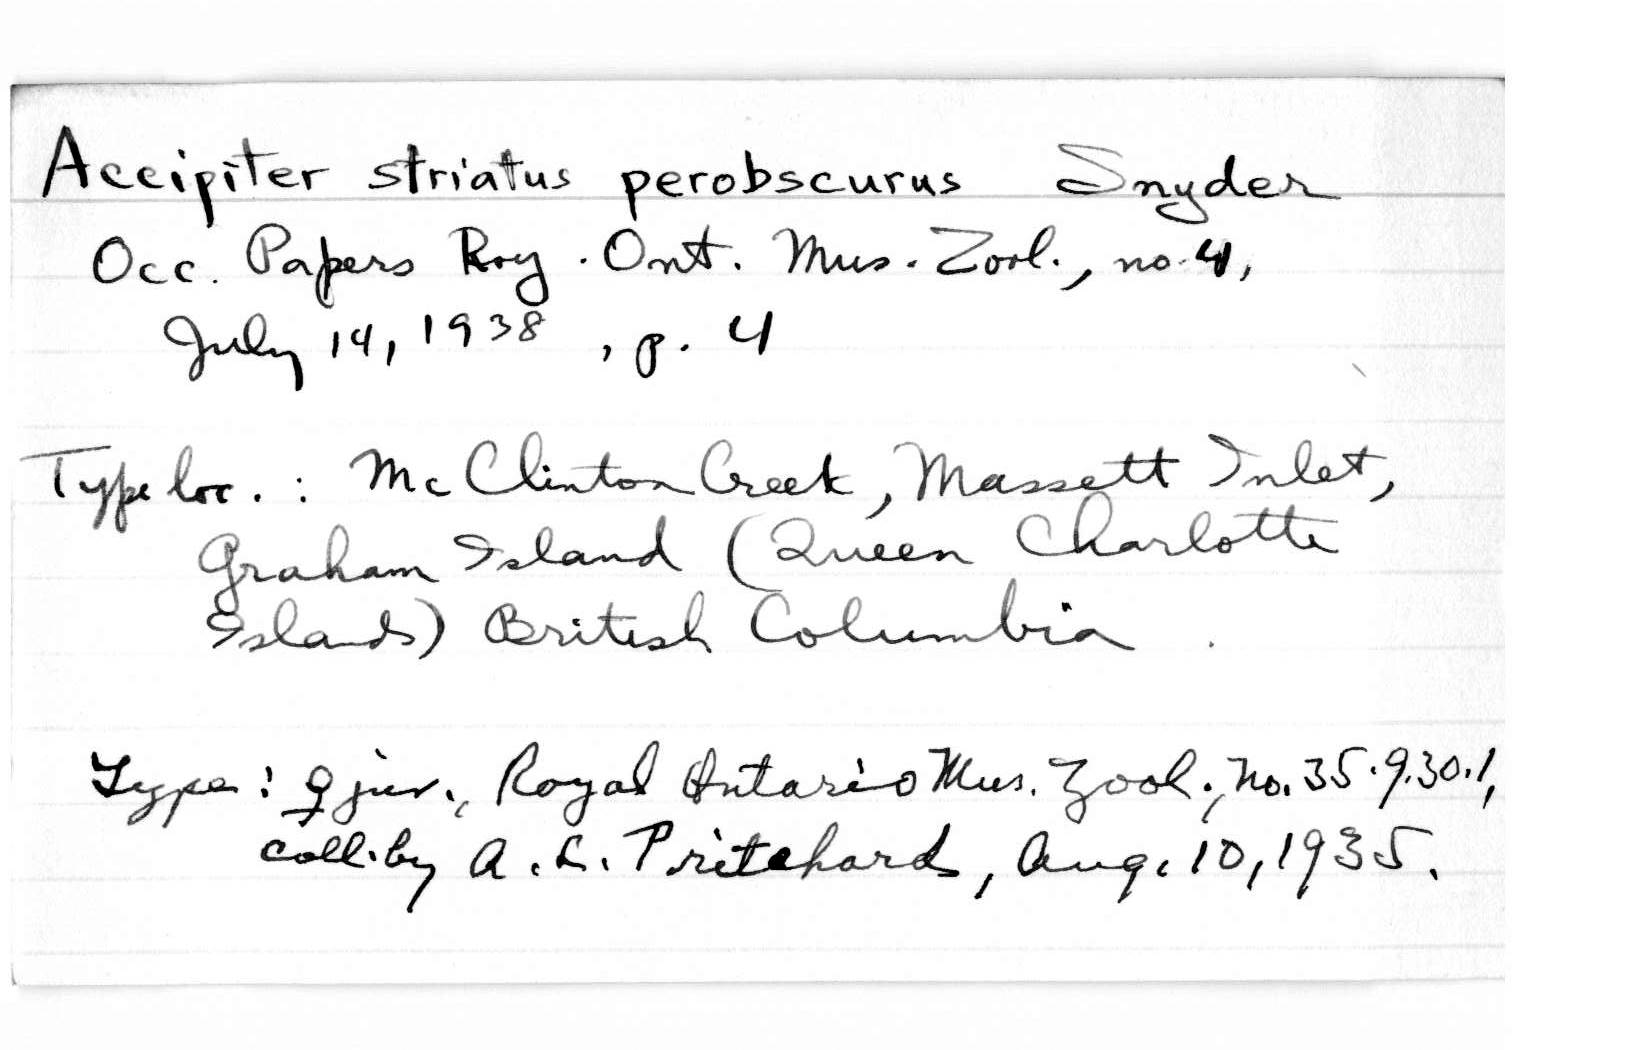 Accipiter striatus perobscurus Snyder
Occ. Papers Roy. Ont. Mus. Zool., no. 4,
July 14, 1938, p. 4
Type loc.: McClinton Creek, Massett Inlet,
Graham Island (Queen Charlotte
Islands) British Columbia.
Type: ♀ juv., Royal Ontario Mus. Zool., No. 35.9.30.1,
coll. by A. L. Pritchard, Aug. 10, 1935.